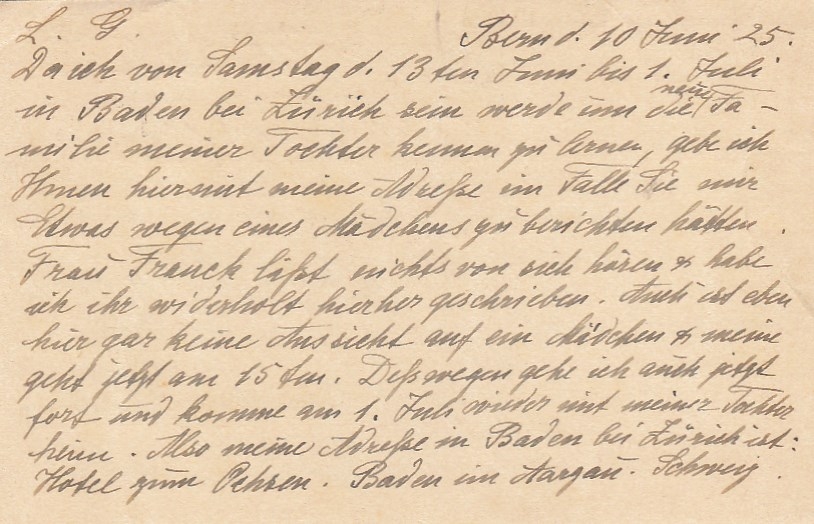 L. G. Bern d. 10 Juni 25.
Da ich von Samstag d. 13ten Juni bis 1. Juli
in Baden bei Zürich sein werde um die neue Fa-
milie meiner Tochter kennen zu lernen, gebe ich
Ihnen hiermit meine Adreße im Falle Sie mir
Etwas wegen eines Mädchens zu berichten hätten.
Frau Franck läßt nichts von sich hören & habe
ich ihr widerholt hierher geschrieben. Auch ist eben
hier gar keine Aussicht auf ein Mädchen & meine
geht jetzt am 15ten. Deßwegen gehe ich auch jetzt
fort und komme am 1. Juli wieder mit meiner Tochter
heim. Also meine Adreße in Baden bei Zürich ist:
Hotel zum Ochsen. Baden im Aargau. Schweiz.